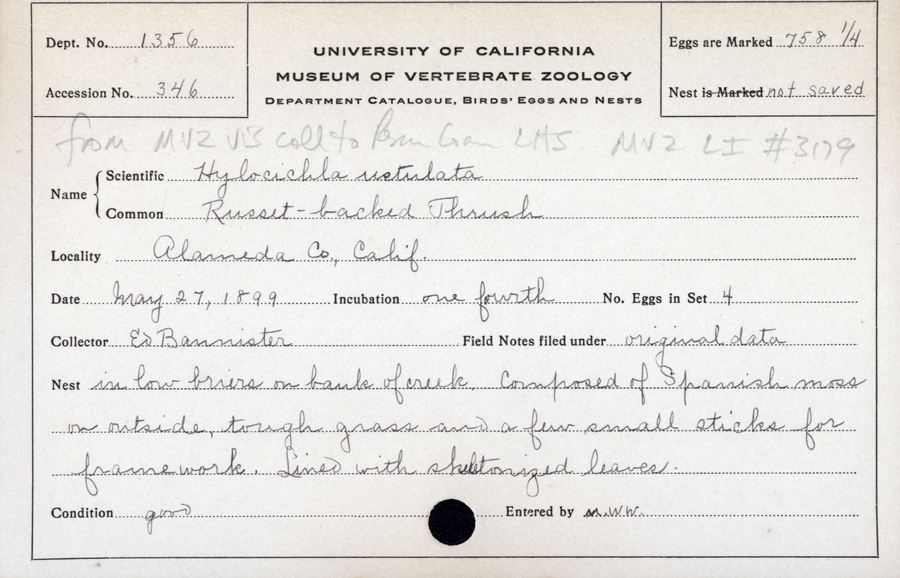 Dept. No. 1356
Accession No. 346
UNIVERSITY OF CALIFORNIA
MUSEUM OF VERTEBRATE ZOOLOGY
DEPARTMENT CATALOGUE, BIRDS' EGGS AND NESTS
Eggs are Marked 758 1/4
Nest is Marked not saved
from MVZ coll to LHS. MVZ #3179
Name
Scientific Hylocichla ustulata
Common Russet-backed Thrush
Locality Alameda Co., Calif.
Date May 27, 1899 Incubation one fourth No. Eggs in Set 4
Collector Ed Bannister Field Notes filed under original data
Nest in low briers on bank of creek. Composed of Spanish moss
on outside, tough grass and a few small sticks for
framework. Lined with skeletonized leaves.
Condition good Entered by M.W.W.